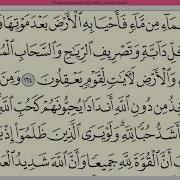 مِن مَّآءٍ فَأَحْيَا بِهِ ٱلْأَرْضَ بَعْدَ مَوْتِهَا
دَآبَّةٍ وَتَصْرِيفِ ٱلرِّيَٰحِ وَٱلسَّحَابِ
وَٱلْأَرْضِ لَءَايَٰتٍ لِّقَوْمٍ يَعْقِلُونَ ١٦٤ وَمِنَ
مِن دُونِ ٱللَّهِ أَندَادًا يُحِبُّونَهُمْ كَحُبِّ ٱللَّهِ
أَشَدُّ حُبًّا لِّلَّهِ وَلَوْ يَرَى ٱلَّذِينَ ظَلَمُوٓا۟ إِذْ
أَنَّ ٱلْقُوَّةَ لِلَّهِ جَمِيعًا وَأَنَّ ٱللَّهَ شَدِيدُ